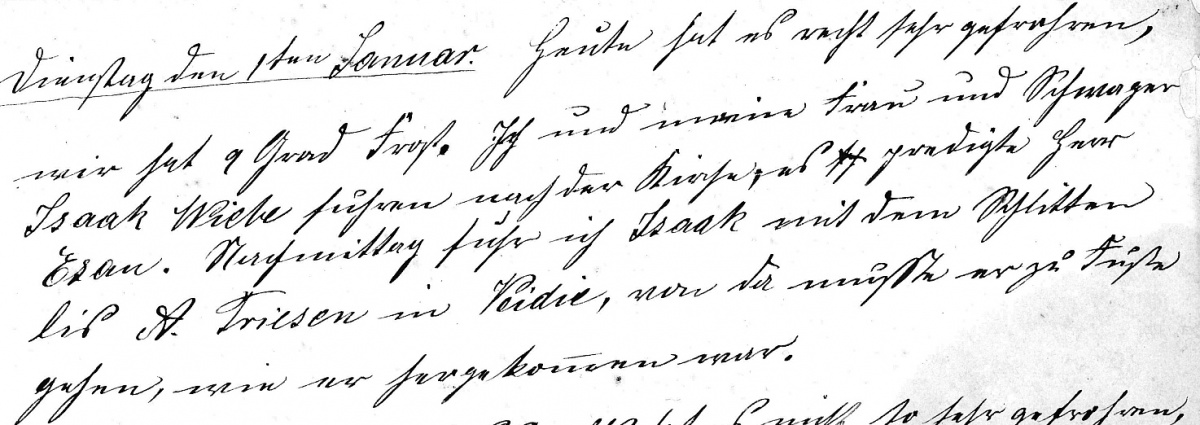 Dienstag den 1ten Januar. Heute hat es recht sehr gefrohren,
wir hat 9 Grad Frost. Ich und meine Frau und Schwager
Isaak Wiebe fuhren nach der Kirche, es predigte Herr
Esau. Nachmittag fuhr ich Isaak mit dem Schlitten
bis A. Friesen in, von da mußte er zu Fuße
gehen, wie er hergekommen war.
es nicht so sehr gefrohren,